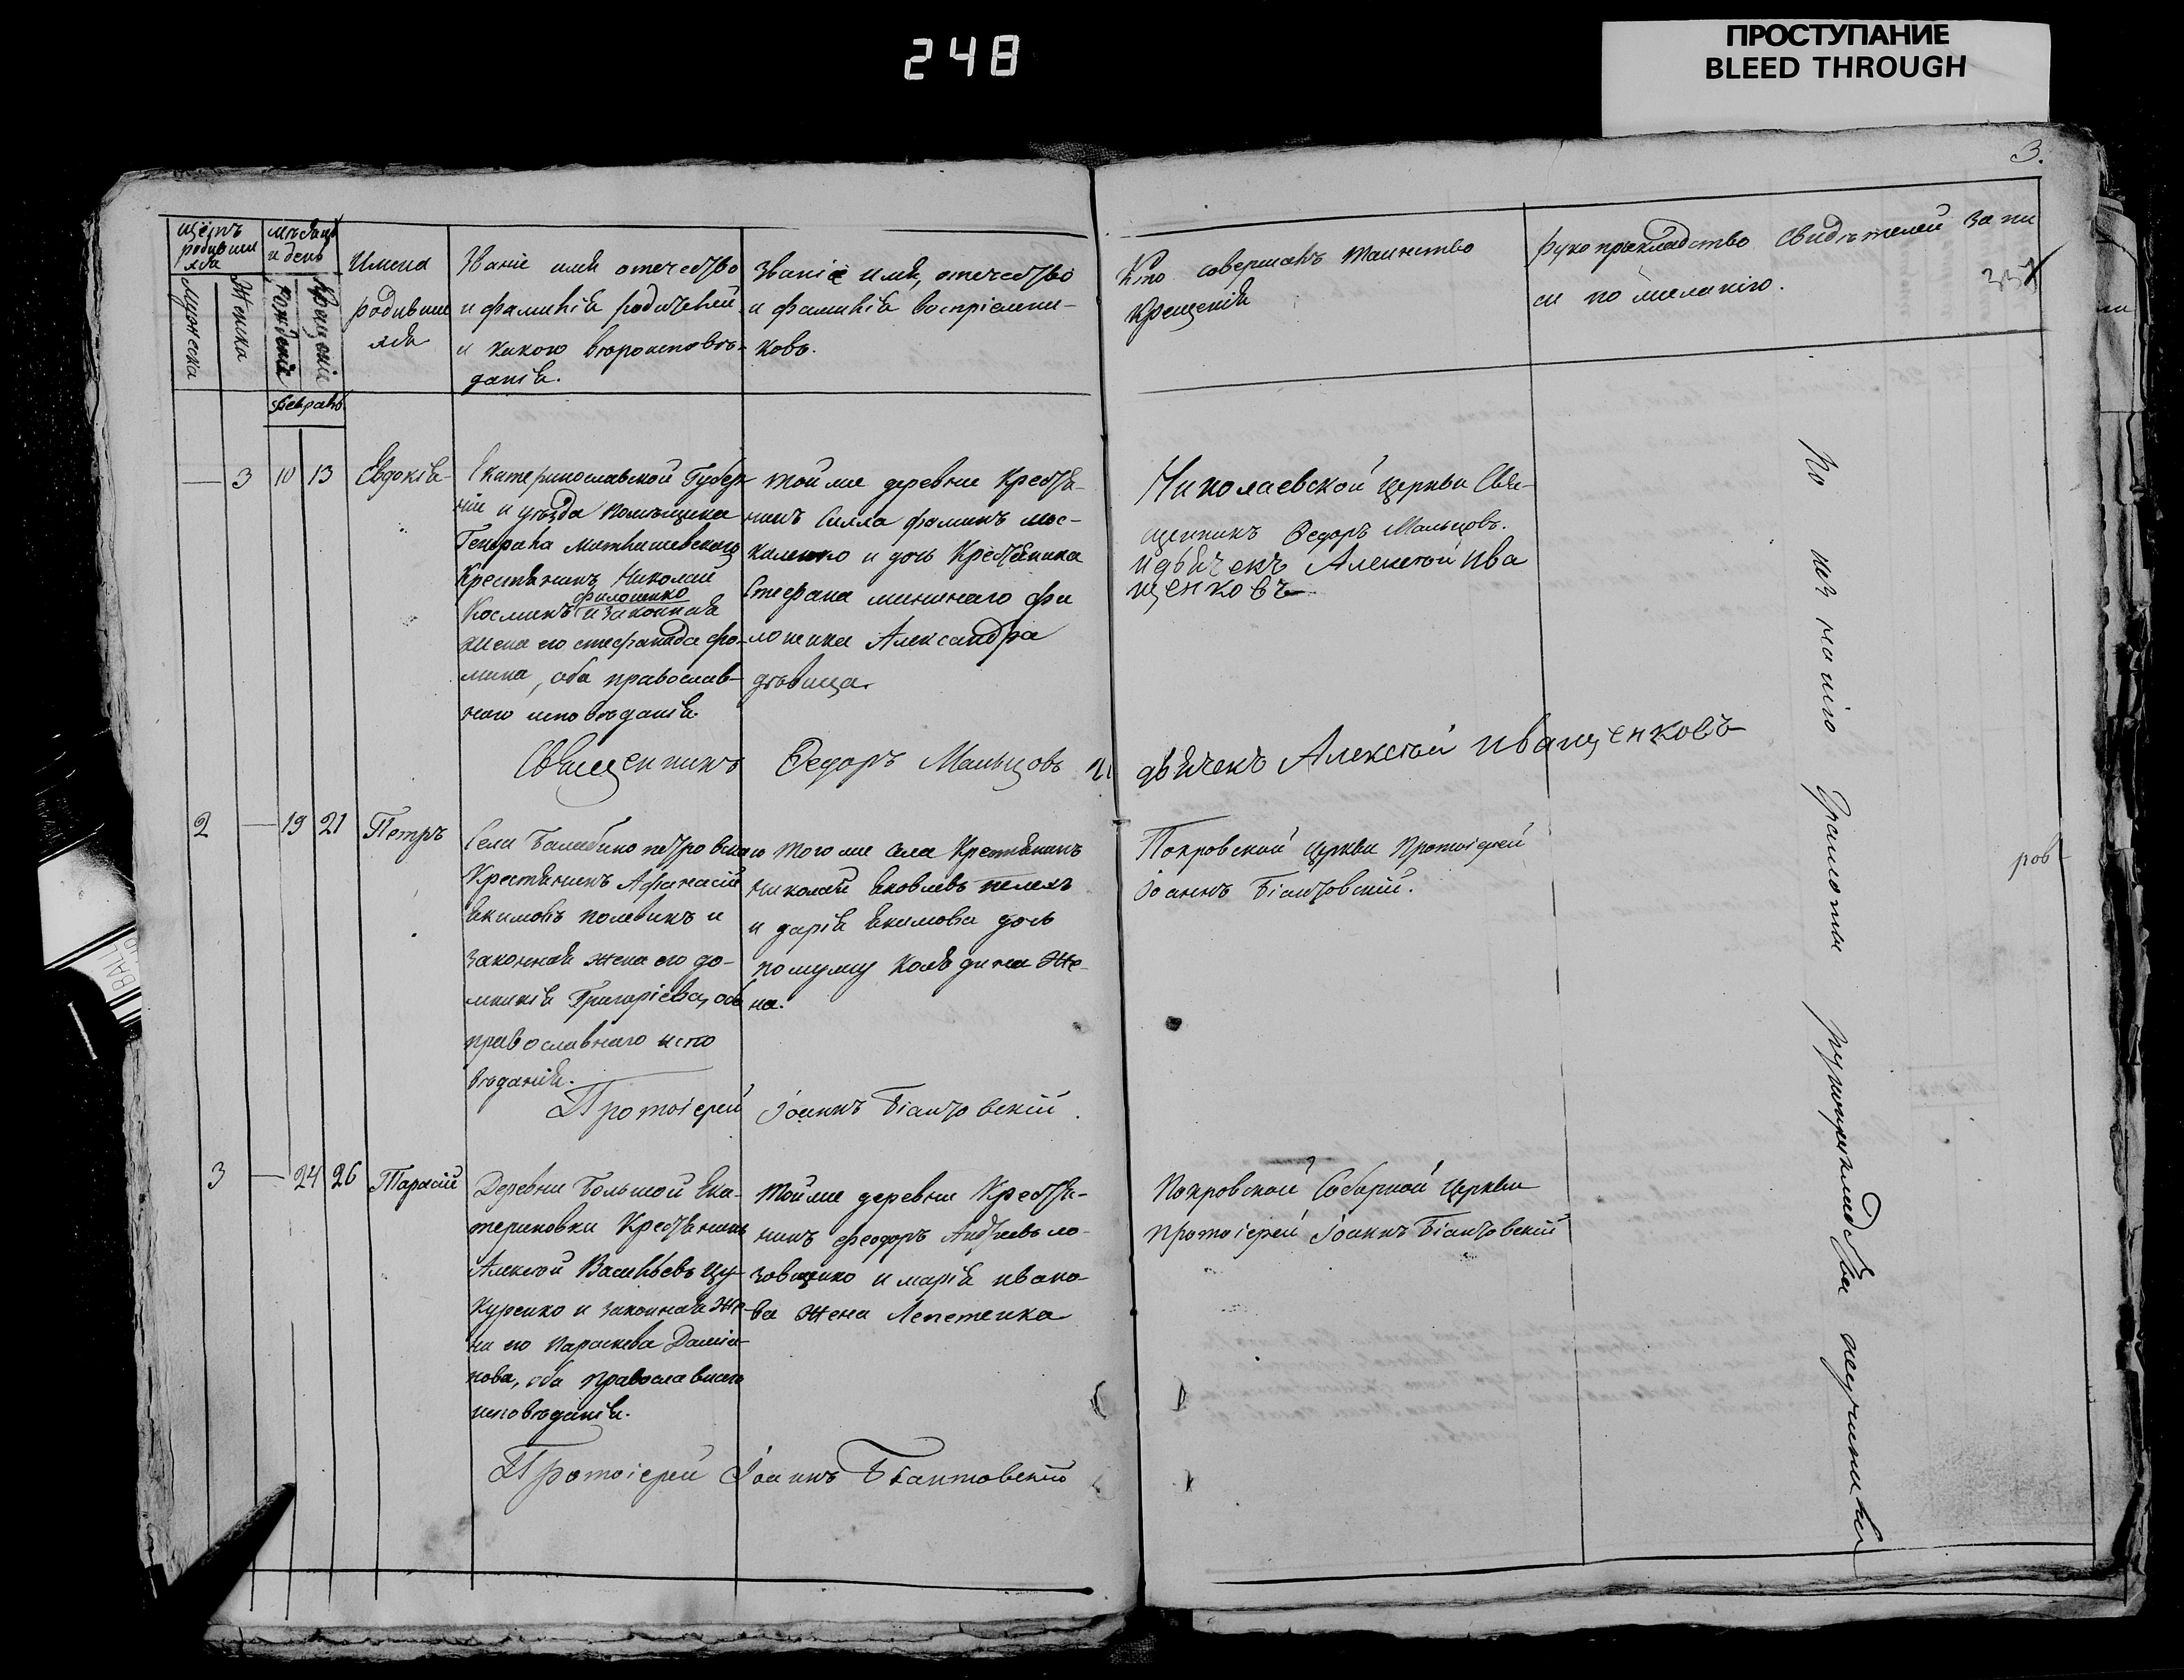 248
ПРОСТУПАНИЕ
BLEED THROUGH
3.
щетъ
родивших
ся
мѣсяцъ
и день
Мужеска
Женска
Рожденія
Крещенія
Имена
родивших
ся
Званіе имя отечество
и фамилія родителей
и какого вѣроисповѣ-
данія.
Званіе имя, отечество
и фамилія воспріемни-
ковъ.
Кто совершалъ таинство
крещенія
Рукоприкладство свидѣтелей запи
си по желанію.
Февраль
3
10
13
Евдокія
Екатеринославской Губер
ніи и уѣзда помѣщика
Генерала
Крестьянинъ Николай
филошко
Космин и законная
жена его Стефанида Фо-
мина, оба православ-
наго исповѣданія.
Той же деревни Крестья-
нинъ Силла Фоминъ Мос-
каленко и дочь Крестьянина
Стефана Фи
лошика Александра
дѣвица.
Николаевской церкви Свя-
щенникъ Федоръ Мальцовъ.
и дьячекъ Алексѣй Ива
щенковъ
Священникъ Федоръ Мальцовъ и
дьячекъ Алексѣй Иващенковъ
2
19
21
Петръ
Села Балабино петровскаго
Крестьянинъ Афанасій
Якимовъ полевикъ и
законная жена его До-
мникія Григоріева, оба
православнаго испо
вѣданія.
Того же села Крестьянинъ
Николай Яковлевъ пелехъ
и Дарія Якимова дочь
по мужу Колядина Же-
на.
Покровской церкви Протоіерей
Іоаннъ Біантовскій.
Протоіерей Іоаннъ Біантовскій.
3
24
26
Тарасій
Деревни Большой Ека-
териновки Крестьянинъ
Алексѣй Васильевъ Цу-
куренко и законная Же-
на его Параскева Даміа-
нова, оба православнаго
исповѣданія.
Той же деревни Крестья-
нинъ Феодоръ Андреевъ Ло-
зовщико и Марія Ивано-
ва жена Лепетенка
Покровской Соборной Церкви
Протоіерей Іоаннъ Біантовскій
Протоіерей Іоаннъ Біантовскій
По незнанію Грамоты рукоприкладства неучинили
ров-